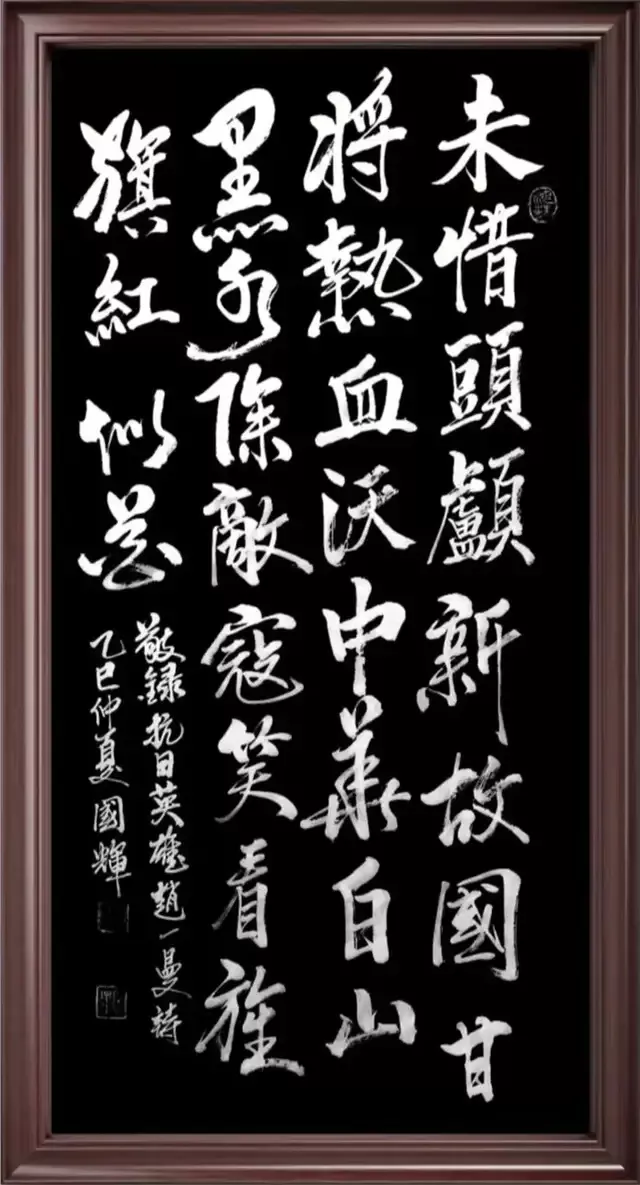 未惜頭顱新故國甘
將熱血沃中華白山
黑水除敵寇笑看旌
旗紅似花
敬錄抗日英雄趙一曼詩
乙巳仲夏國輝